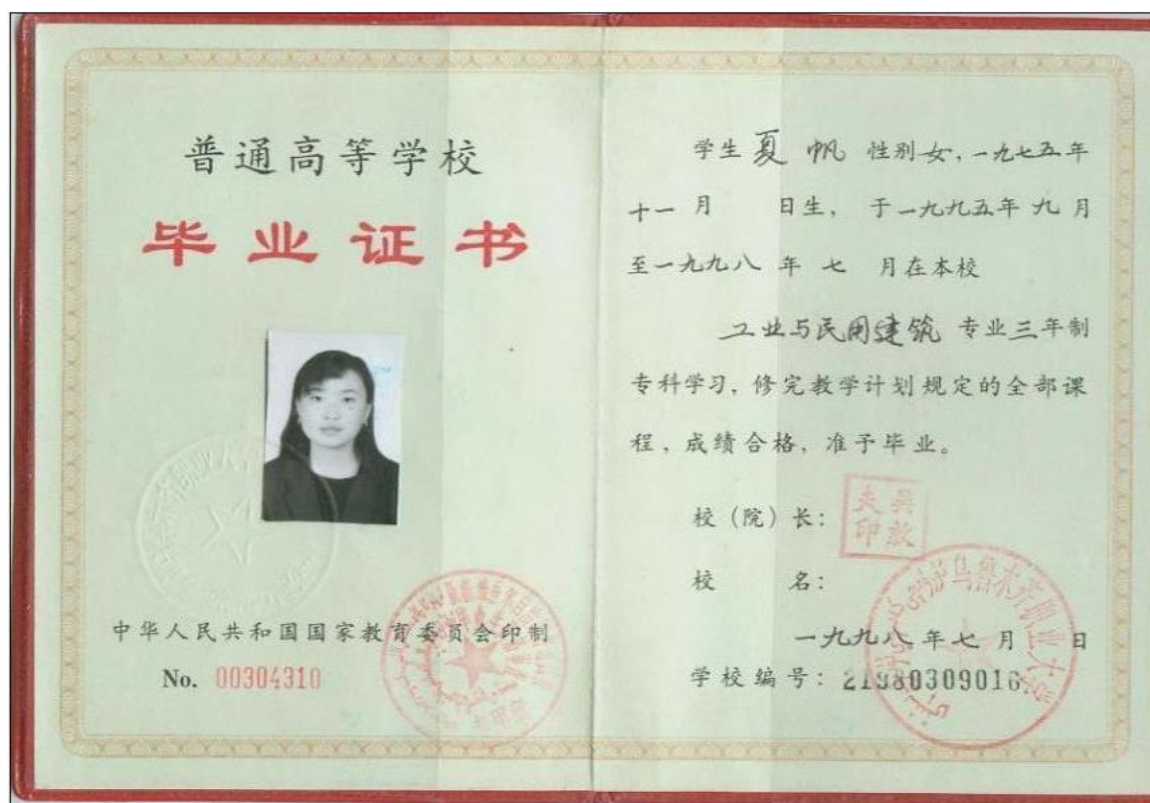 普通高等学校
毕业证书
中华人民共和国国家教育委员会印制
No. 00304310
学生 夏帆 性别女,一九七五年
十一月 日生, 于一九九五年九月
至一九九八年七 月在本校
工业与民用建筑 专业三年制
专科学习, 修完教学计划规定的全部课
程, 成绩合格, 准予毕业。
校(院)长:
吴敖
夫印
校 名:
乌鲁木齐职业大学
一九九八年七月 日
学校编号: 21980309016